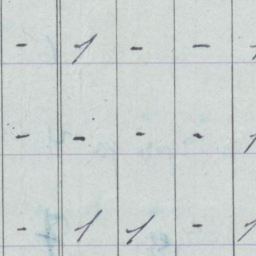 - 1 - - 1
- - - - 1
- 1 1 - 1